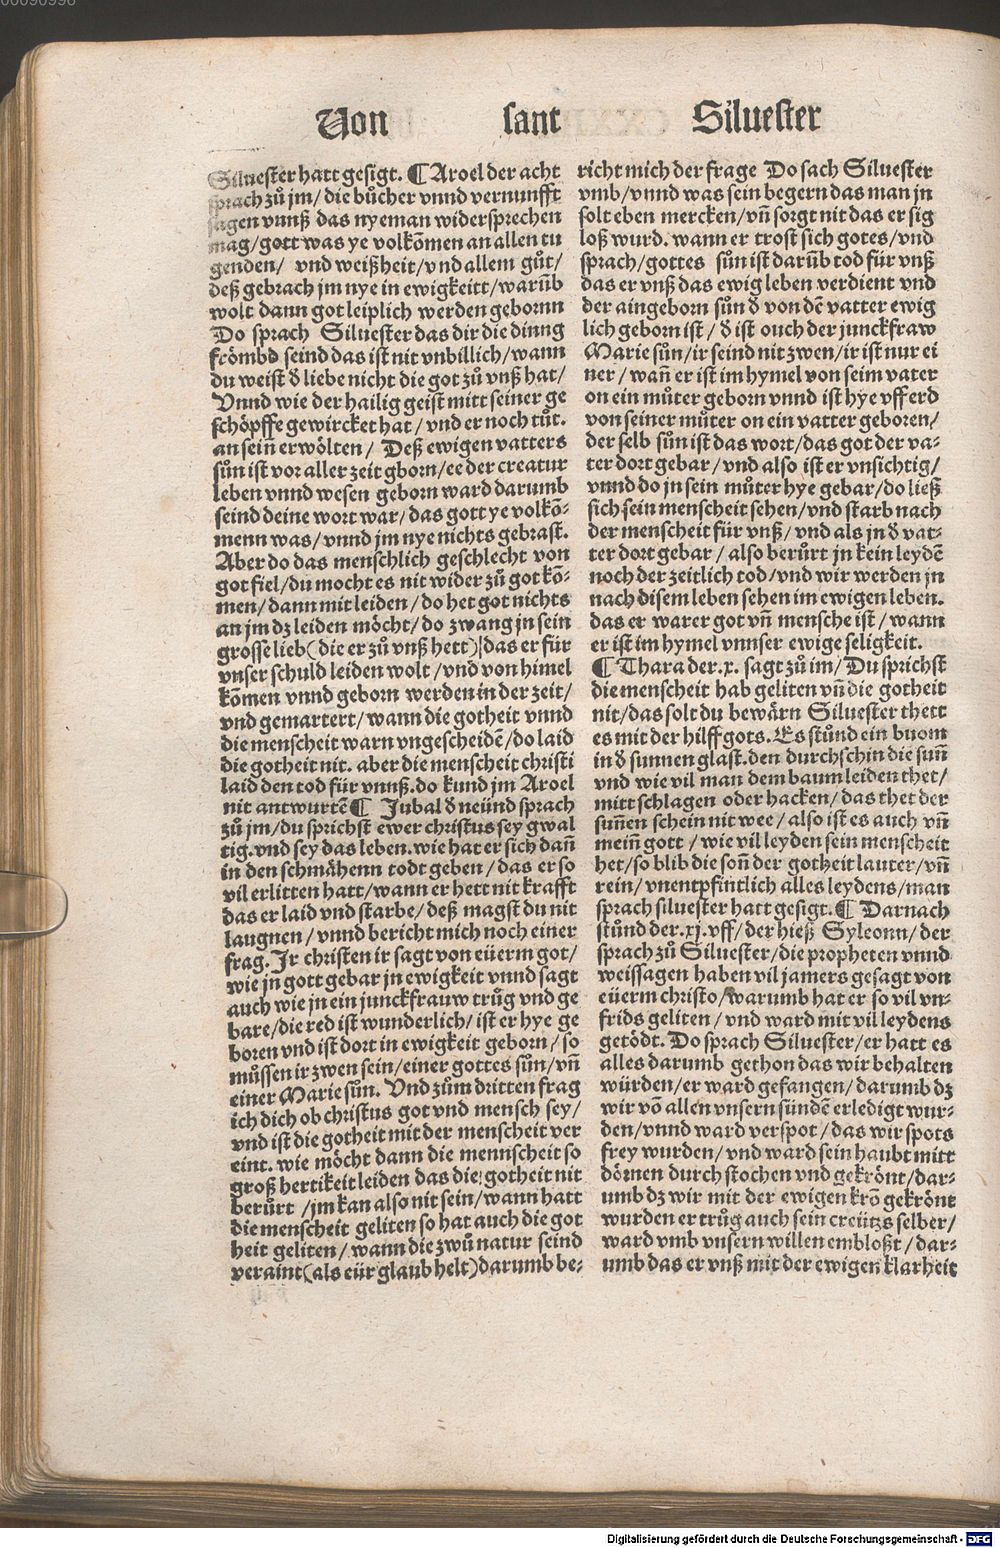 00090998
Von sant Siluester
Siluester hatt gesigt. ¶ Aroel der acht
sprach zů jm/ die bůcher vnnd vernunfft
sagen vnnß das nyeman widersprechen
mag/gott was ye volkom̄en an allen tu
genden/ vnd weißheit/vnd allem gůt/
deß gebrach jm nye in ewigkeitt/warūb
wolt dann got leiplich werden gebornn
Do sprach Siluester das dir die dinng
frömbd seind das ist nit vnbillich/wann
du weist d̕ liebe nicht die got zů vnß hat/
Vnnd wie der hailig geist mitt seiner ge
schöpffe gewircket hat/vnd er noch tůt.
an sein̄ erwölten/ Deß ewigen vatters
sůn ist vor aller zeit gborn/ee der creatur
leben vnnd wesen geborn ward darumb
seind deine wort war/das gott ye volkō-
menn was/vnnd jm nye nichts gebrast.
Aber do das menschlich geschlecht von
got fiel/du mocht es nit wider zů got kō-
men/dann mit leiden/do het got nichts
an jm dz leiden möcht/do zwang jn sein
grosse lieb(die er zů vnß hett) das er für
vnser schuld leiden wolt/vnd von himel
kōmen vnnd geborn werden in der zeit/
vnd gemartert/wann die gotheit vnnd
die menscheit warn vngescheidē/do laid
die gotheit nit. aber die menscheit christi
laid den tod für vnnß.do kund jm Aroel
nit antwurtē ¶ Jubal d̕ neünd sprach
zů jm/du sprichst ewer christus sey gwal
tig.vnd sey das leben.wie hat er sich dan̄
in den schmähenn todt geben/das er so
vil erlitten hatt/wann er hett nit krafft
das er laid vnd starbe/deß magst du nit
laugnen/vnnd bericht mich noch einer
frag. Ir christen ir sagt von eüerm got/
wie jn gott gebar jn ewigkeit vnnd sagt
auch wie jn ein junckfrauw trůg vnd ge
bare/die red ist wunderlich/ist er hye ge
boren vnd ist dort in ewigkeit geborn/so
müssen ir zwen sein/einer gottes sůn/vn̄
einer Marie sůn. Vnd zům dritten frag
ich dich ob christus got vnd mensch sey/
vnd ist die gotheit mit der menscheit ver
eint. wie möcht dann die mennscheit so
groß hertikeit leiden das die gotheit nit
berůrt/jm kan also nit sein/wann hatt
die menscheit geliten so hat auch die got
heit geliten/wann die zwů natur seind
veraint(als eür glaub helt)darumb be-
richt mich der frage Do sach Siluester
vmb/vnnd was sein begern das man jn
solt eben mercken/vn̄ sorgt nit das er sig
loß wurd. wann er trost sich gotes/vnd
sprach/gottes sůn ist darūb tod für vnß
das er vnß das ewig leben verdient vnd
der aingeborn sůn d̕ von dē vatter ewig
lich geborn ist/d̕ ist ouch der junckfraw
Marie sůn/ir seind nit zwen/ir ist nur ei
ner/wan̄ er ist im hymel von seim vater
on ein můter geborn vnnd ist hye vff erd
von seiner můter on ein vatter geboren/
der selb sůn ist das wort/das got der va-
ter dort gebar/vnd also ist er vnsichtig/
vnnd do jn sein můter hye gebar/do ließ
sich sein menscheit sehen/vnd starb nach
der menscheit für vnß/vnd als jn d̕ vat-
ter dort gebar/also berůrt jn kein leydē
noch der zeitlich tod/vnd wir werden jn
nach disem leben sehen im ewigen leben.
das er warer got vn̄ mensche ist/wann
er ist im hymel vnnser ewige seligkeit.
¶ Thara der.x. sagt zů im/Du sprichst
die menscheit hab geliten vn̄ die gotheit
nit/das solt du bewärn Siluester thett
es mit der hilff gots. Es stůnd ein buom
in d̕ sunnen glast.den durchschin die sun̄
vnd wie vil man dem baum leiden thet/
mitt schlagen oder hacken/das thet der
sun̄en schein nit wee/also ist es auch vn̄
mein̄ gott/wie vil leyden sein menscheit
het/so blib die son̄ der gotheit lauter/vn̄
rein/vnentpfintlich alles leydens/man
sprach siluester hatt gesigt. ¶ Darnach
stůnd der.xj.vff/der hieß Syleonn/der
sprach zů Siluester/die propheten vnnd
weissagen haben vil jamers gesagt von
eüerm christo/warumb hat er so vil vn-
frids geliten/vnd ward mit vil leydens
getödt. Do sprach Siluester/er hatt es
alles darumb gethon das wir behalten
würden/er ward gefangen/darumb dz
wir vō allen vnsern sündē erledigt wur-
den/vnnd ward verspot/das wir spots
frey wurden/vnd ward sein haubt mitt
dörnen durchstochen vnd gekrönt/dar-
umb dz wir mit der ewigen krō gekrönt
wurden er trůg auch sein creütz selber/
ward vmb vnsern willen embloßt/dar-
umb das er vnß mit der ewigen klarheit
Digitalisierung gefördert durch die Deutsche Forschungsgemeinschaft - DFG